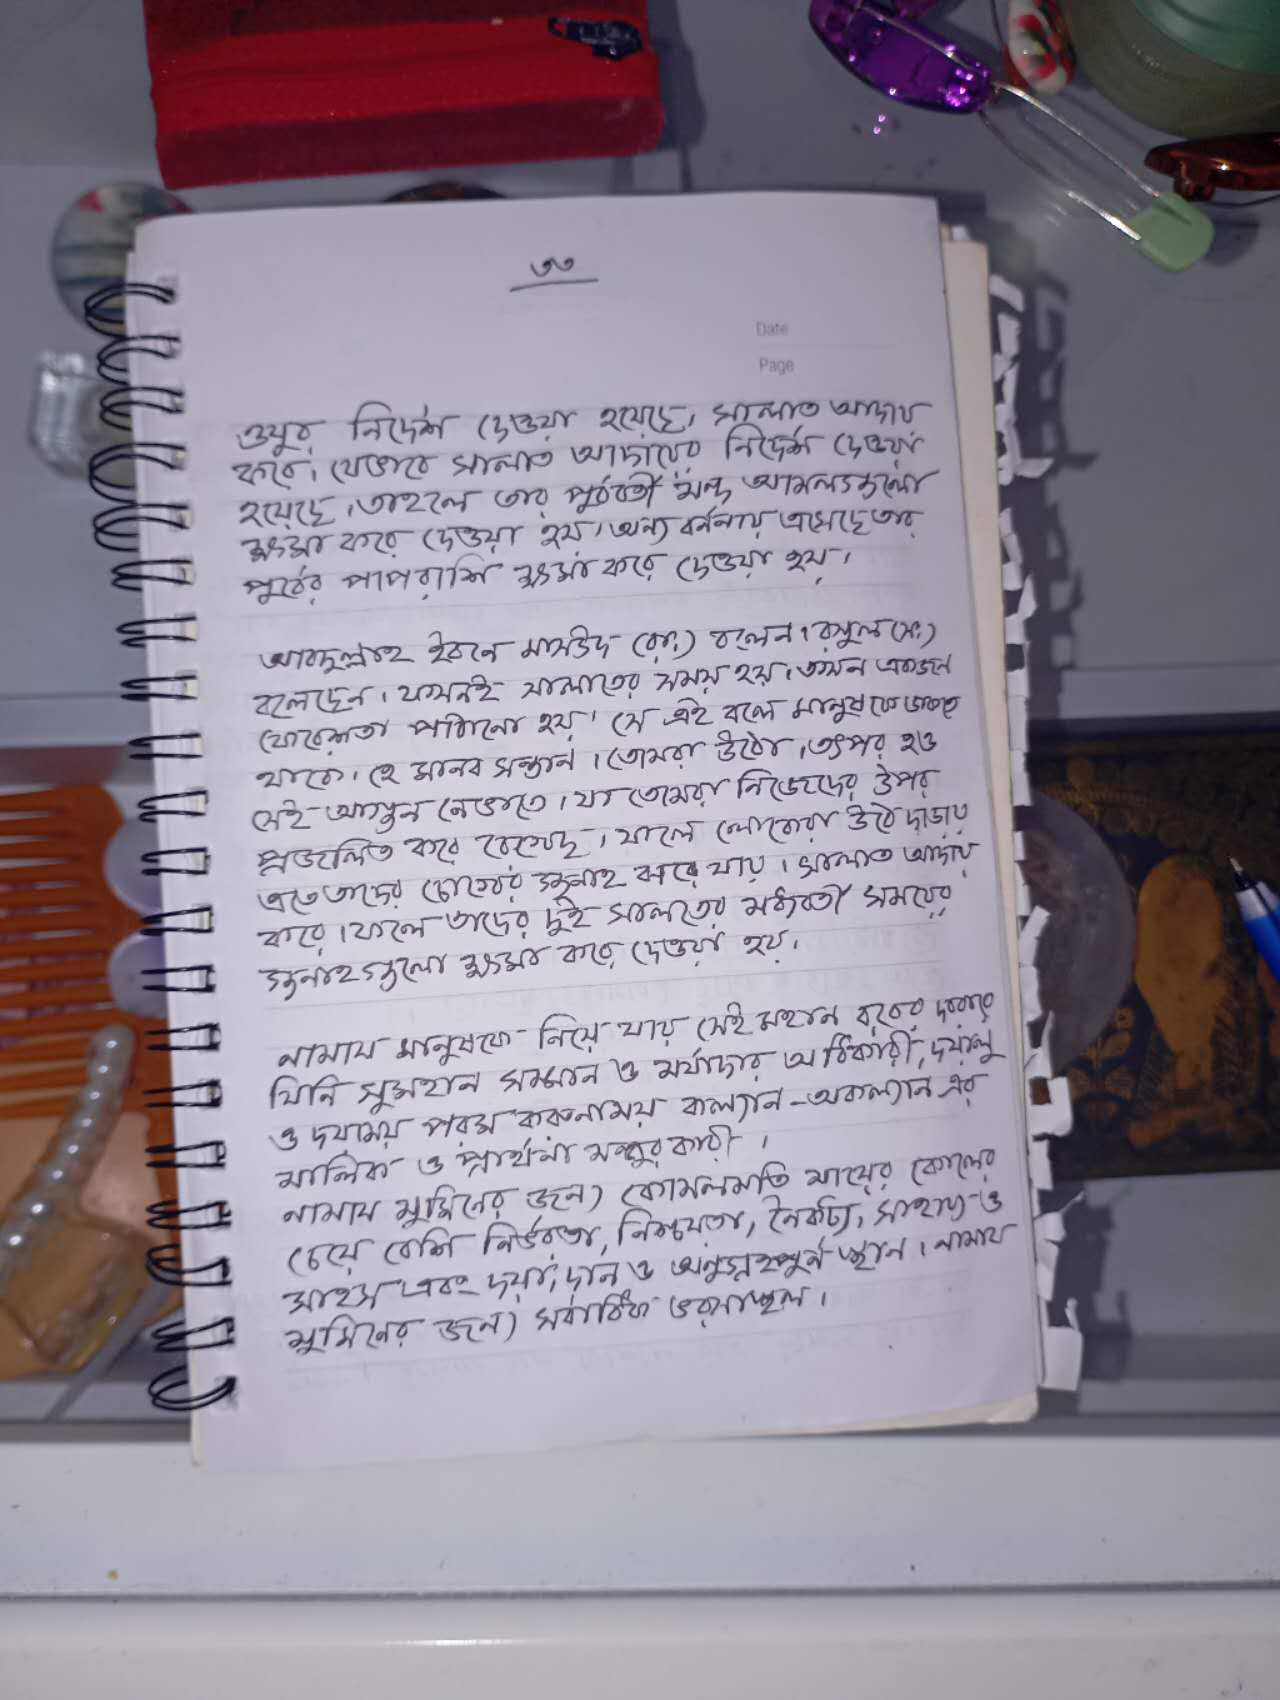 ৩৩
Date
Page
ওযুর নির্দেশ দেওয়া হয়েছে, সালাত আদায়
করে, যেভাবে সালাত আদায়ের নির্দেশ দেওয়া
হয়েছে, তাহলে তার পূর্ববর্তী মন্দ আমলগুলো
ক্ষমা করে দেওয়া হয়। অন্য বর্ননায় এসেছে তার
পূর্বের পাপরাশি ক্ষমা করে দেওয়া হয়।
আবদুল্লাহ ইবনে মাসউদ (রা:) বলেন, রসুল (সা:)
বলেছেন, যখনই সালাতের সময় হয়, তখন একজন
ফেরেশতা পাঠানো হয়, সে এই বলে মানুষকে ডাকতে
থাকে, হে মানব সন্তান, তোমরা উঠো, তৎপর হও
সেই আগুন নেভাতে, যা তোমরা নিজেদের উপর
প্রজ্জলিত করে রেখেছ, ফলে লোকেরা উঠে দাড়ায়
এতে তাদের চোখের গুনাহ ঝরে যায়। সালাত আদায়
করে, ফলে তাদের দুই সালাতের মধ্যবর্তী সময়ের
গুনাহগুলো ক্ষমা করে দেওয়া হয়।
নামায মানুষকে নিয়ে যায় সেই মহান রবের দরবারে
যিনি সুমহান সম্মান ও মর্যাদার অধিকারী, দয়ালু
ও দয়াময় পরম করুনাময় কল্যান-অকল্যান এর
মালিক ও প্রার্থনা মঞ্জুরকারী।
নামায মুমিনের জন্য কোমলমতি মায়ের কোলের
চেয়ে বেশি নির্ভরতা, নিশ্চয়তা, নৈকট্য, সাহায্য ও
সাহস এবং দয়া, দান ও অনুগ্রহপূর্ন স্থান। নামায
মুমিনের জন্য সর্বাধিক ভরসাস্থল।